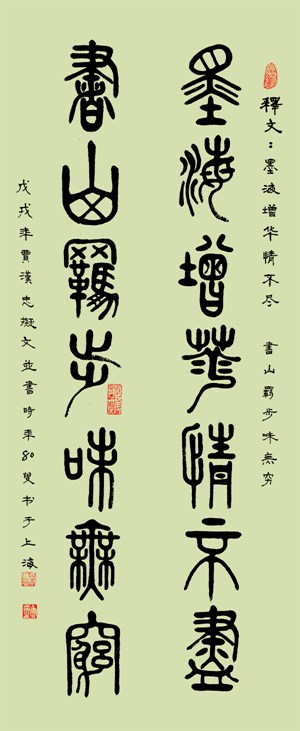 释文：墨海增华情不尽 書山羁步味無穷
墨海增華情不盡
書山羈步味無窮
戊戌年賈漢忠擬文並書時年80叟书于上海